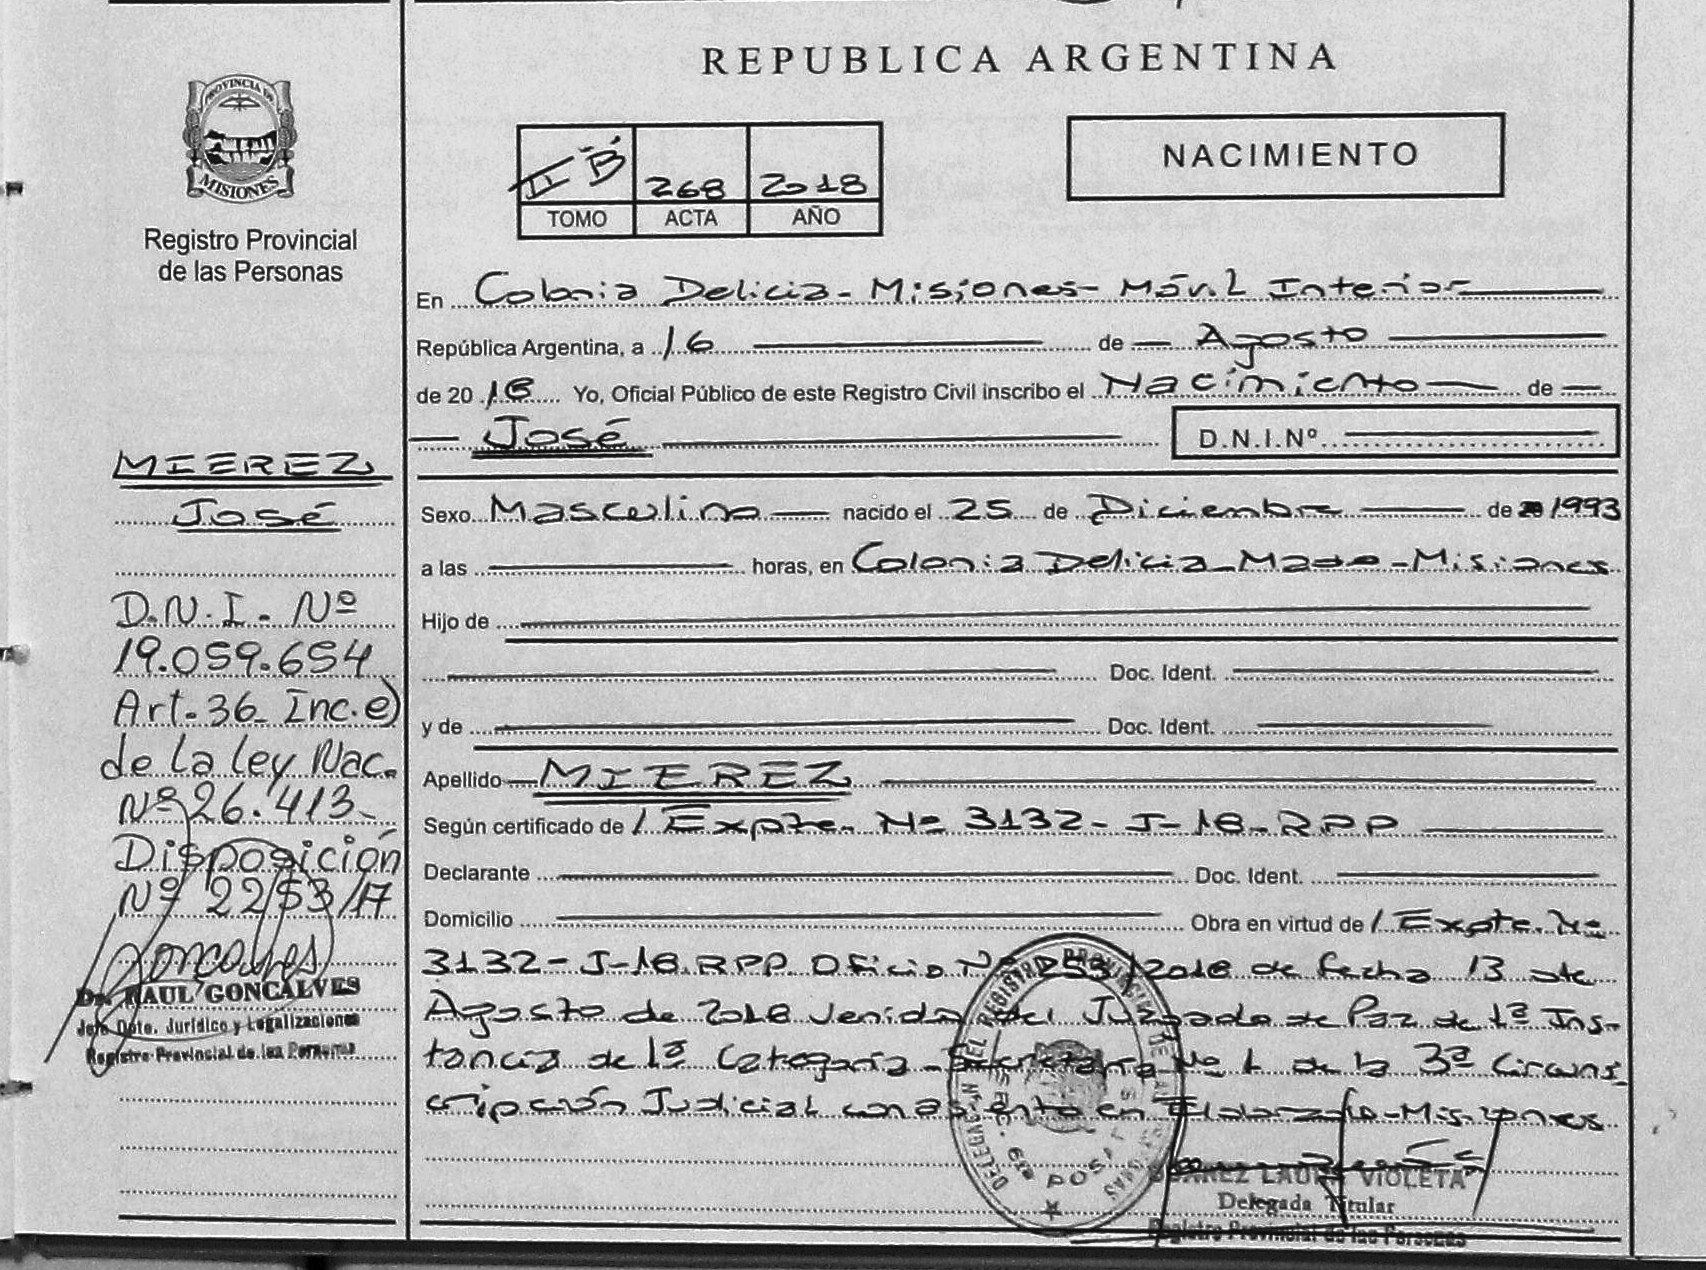 PROVINCIA DE
MISIONES
Registro Provincial
de las Personas
MIEREZ
José
D.N.I. Nº
19.059.654
Art. 36 Inc. e)
de la ley Nac.
Nº 26.413-
Disposición
Nº 2253/17
Goncalves
Dr. RAUL GONCALVES
Jefe Dpto. Jurídico y Legalizaciones
Registro Provincial de las Personas
REPUBLICA ARGENTINA
II "B" 268 2018
TOMO ACTA AÑO
NACIMIENTO
En Colonia Delicia - Misiones - Móvil Interior
República Argentina, a 16 de Agosto
de 2018 Yo, Oficial Público de este Registro Civil inscribo el Nacimiento de
José D.N.I.Nº
Sexo Masculino nacido el 25 de Diciembre de 1993
a las horas, en Colonia Delicia - Mado - Misiones
Hijo de
Doc. Ident.
y de Doc. Ident.
Apellido MIEREZ
Según certificado de / Expte. Nº 3132-J-18-RPP
Declarante Doc. Ident.
Domicilio Obra en virtud de / Expte. Nº
3132-J-18.RPP Oficio Nº 253/2018 de fecha 13 de
Agosto de 2018 venido del Juzgado de Paz de 1ª Ins-
tancia de 1ª Categoría - Secretaría Nº 1 de la 3ª Circuns-
cripción Judicial con asiento en Eldorado - Misiones
SUAREZ LAURA VIOLETA
Delegada Titular
Registro Provincial de las Personas